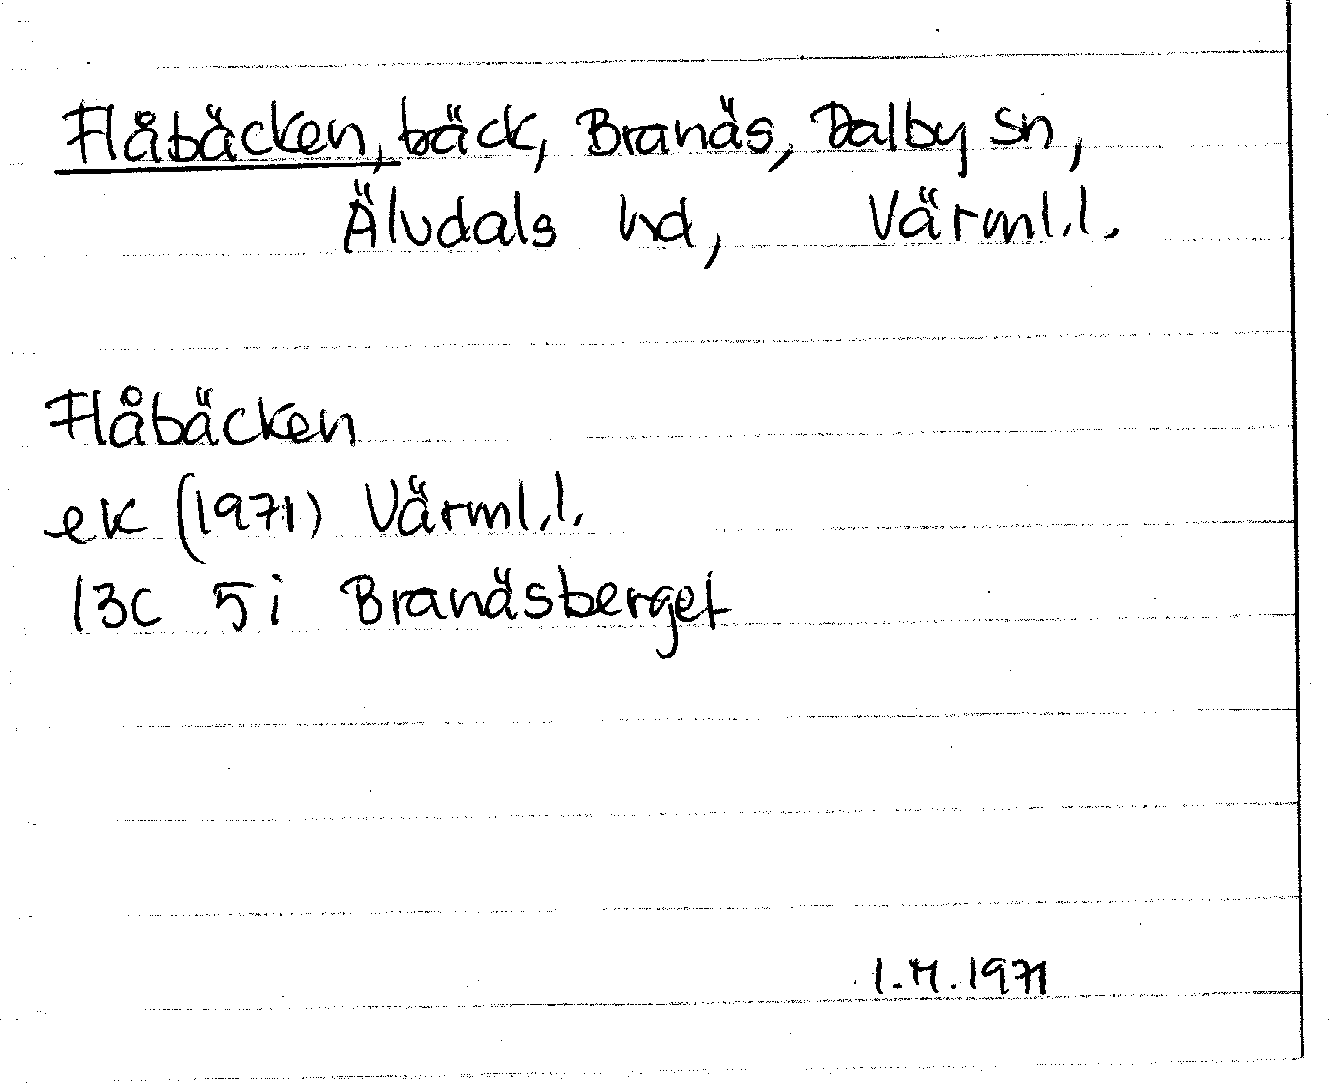 Flåbäcken, bäck, Branäs, Dalby sn,
Älvdals hd, Värml.l.
Flåbäcken
ek (1971) Värml.l.
13C 5i Branäsberget
I.M. 1971